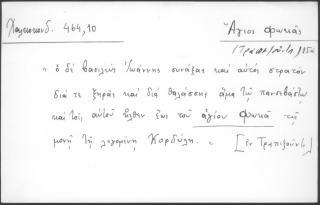 Χαλκοκονδ. 464,10
Ἅγιος Φωκᾶς
(Τραπεζοῦντος)
" ὁ δὲ βασιλεὺς Ἰωάννης συνάξας καὶ αὐτὸς στρατὸν
διά τε ξηρᾶς καὶ διὰ θαλάσσης ἅμα τῷ πανσεβάστῳ
καὶ τοῖς αὐτοῦ ἦλθεν ἕως τοῦ ἁγίου Φωκᾶ τῇ
μονῇ τῇ λεγομένῃ Κορδύλῃ. " [ἐν Τραπεζοῦντι]